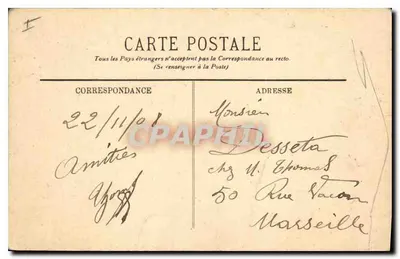 I
CARTE POSTALE
Tous les Pays étrangers n'acceptent pas la Correspondance au recto
(Se renseigner à la Poste)
CORRESPONDANCE
22/11/01
Amitiés
ADRESSE
Monsieur
Desseta
chez M. Thomas
50 Rue Vacon
Marseille
CPAPHIL